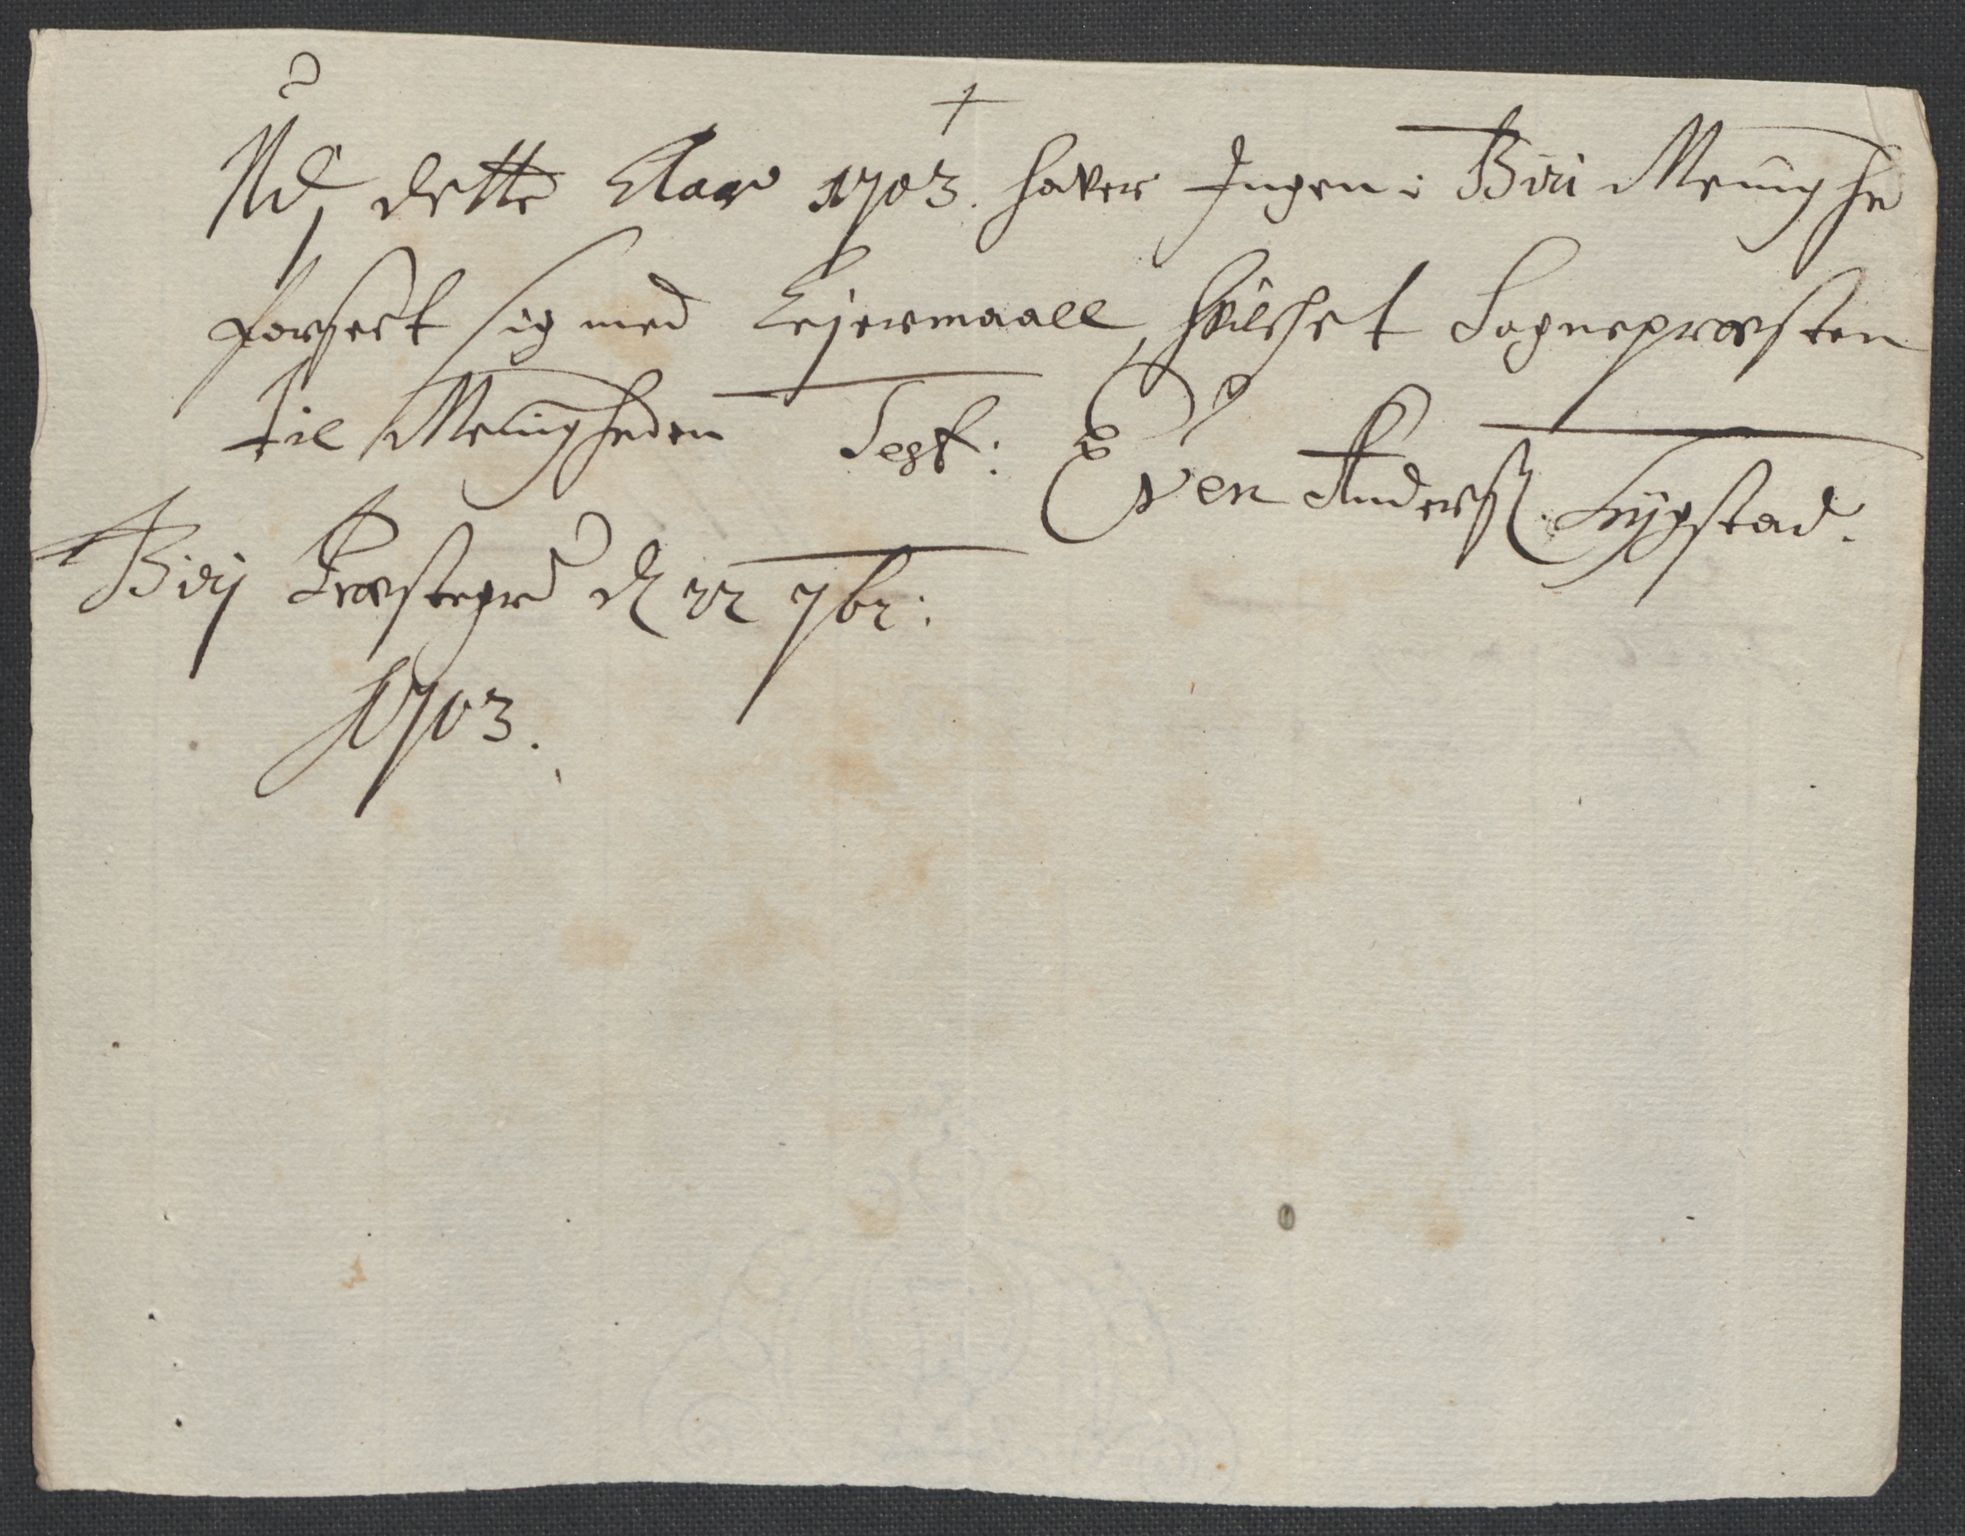 Ud dette Aar 1703. haver Ingen i Biri Menighe
forseet sig med Lejermaall, hvilchet Sognepræsten
til Menigheden Test: Even Anderss. Lygstad.
Birj Præstegrd d 22 7br:
1703.